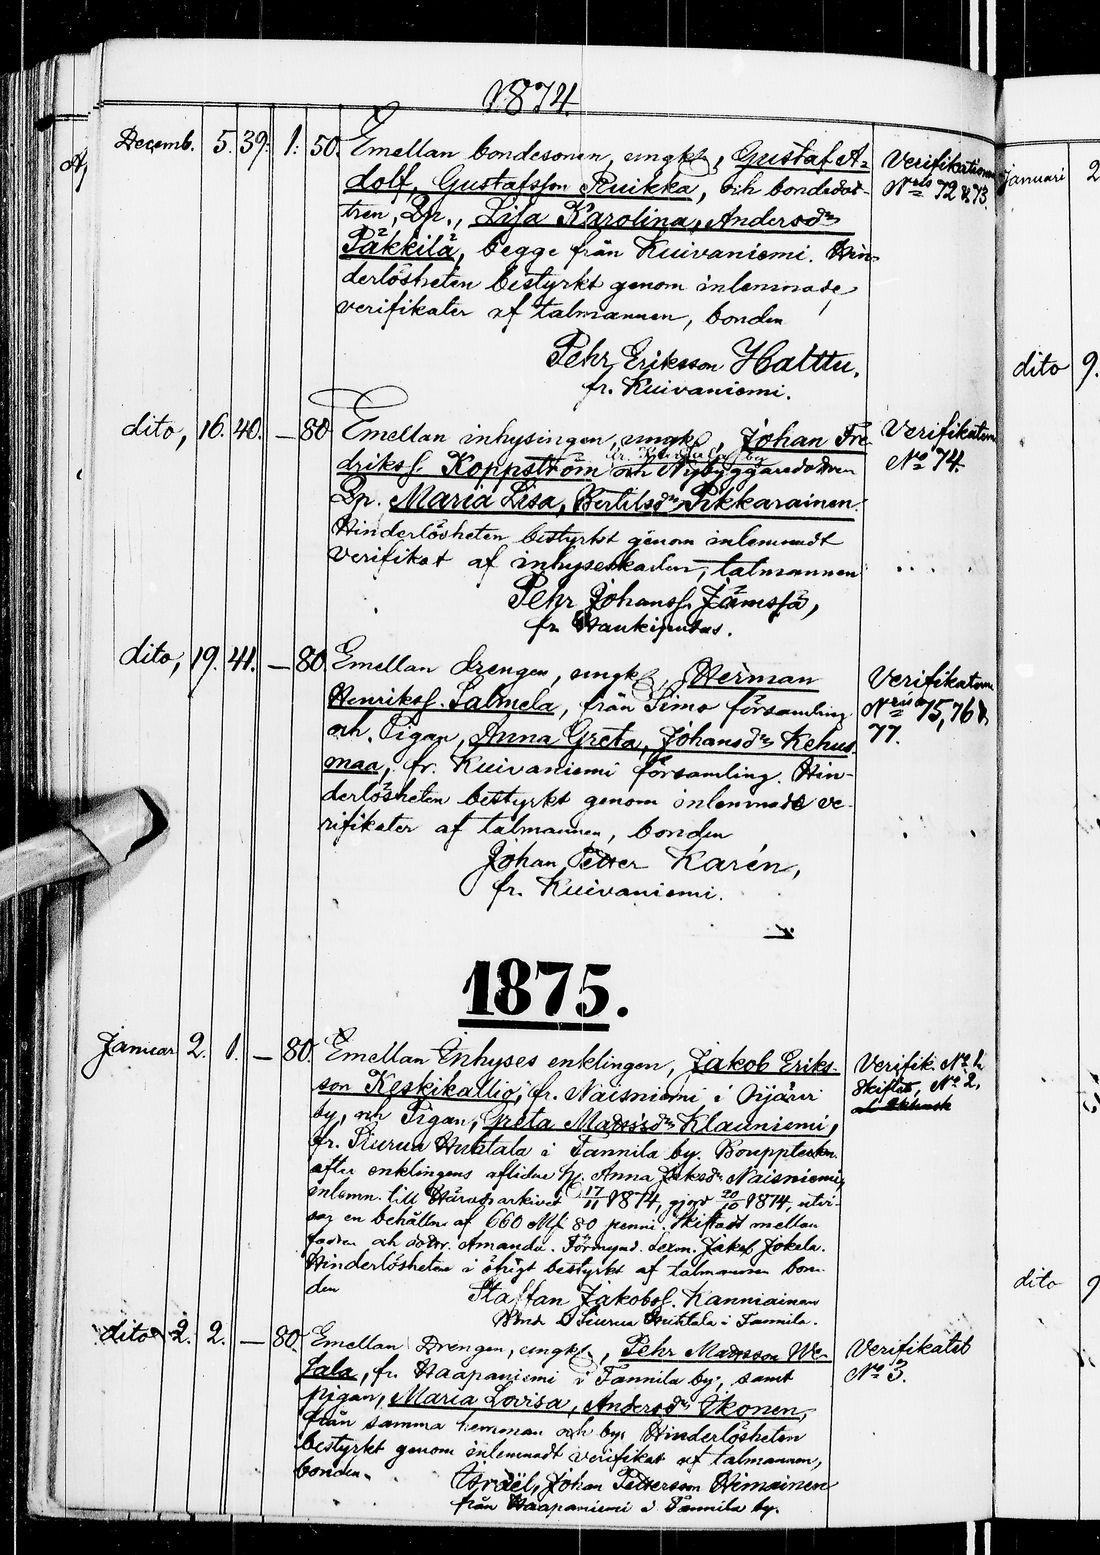 1874.
Decemb. 5. 39. 1: 50. Emellan bondesonen, ungk., Gustaf A=
dolf, Gustafsson Ruikka, och bondedot-
tren, Pn., Lisa Karolina, Andersdr
Päkkilä, begge från Kuivaniemi. Hin-
derlösheten bestyrkt genom inlemnade
verifikater af talmannen, bonden
Pehr Eriksson Halttu,
fr. Kuivaniemi.
Verifikationer
Nris 72 & 73.
dito, 16. 40. — 80. Emellan inhysingen, ungk., Johan Fre-
driks. Koppström och Nybyggaredottren
Pn. Maria Lisa, Bertilsdr Pikkarainen.
Hinderlösheten bestyrkt genom inlemnadt
verifikat af inhysenkarlen, talmannen
Pehr Johans. Jämsä,
fr. Haukipudas.
Verifikation
No 74.
dito, 19. 41. — 80. Emellan drengen, ungk., Herman
Henriks. Salmela, från Simo församling
och Pigan, Anna Greta, Johansdr Kehus
maa, fr. Kuivaniemi församling. Hin-
derlösheten bestyrkt genom inlemnade ve-
rifikater af talmannen, bonden
Johan Petter Karén,
fr. Kuivaniemi.
Verifikation
Nris 75, 76 &
77.
1875.
Januar 2. 1. — 80. Emellan Inhyses enklingen, Jakob Eriks-
son Keskikallio, fr. Naisniemi i
by, och Pigan, Greta Matsdr Klauniemi,
fr. Siurua Huhtala i Tannila by. Bouppteckn.
efter enklingens aflidne h. Anna Jaksdr Naisniemi,
inlemn. till Häradsarkivet 17/11 1874, gjord 20/10 1874, utvi-
sar en behålln. af 660 Mk 80 penni. Skiftadt mellan
fadren och dottr. Amanda. Förmynd. Jakob Jokela.
Hinderlösheten i öfrigt bestyrkt af talmannen bon-
den Staffan Jakobs. Kanniainen
Siurua Huhtala i Tannila.
Verifik. No 1,
Skiftet, No 2,
dito 2. 2. — 80. Emellan Drengen, ungk., Pehr Matsson We-
fr. Haapaniemi i Tannila by, samt
pigan, Maria Lovisa, Andersdr Ikonen,
från samma hemman och by. Hinderlösheten
bestyrkt genom inlemnadt verifikat af talmannen,
bonden Israël, Johan Pettersson Himainen
från Haapaniemi i Tannila by.
Verifikatet
No 3.
Januari 2
dito 9.
dito 9